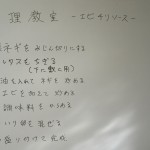 理教室 -エビチリソース-
ネギをみじん切りにする
レタスをちぎる
(下に敷く用)
油を入れてネギを炒める
エビを加えて炒める
調味料をからめる
を混ぜる
盛り付けて完成